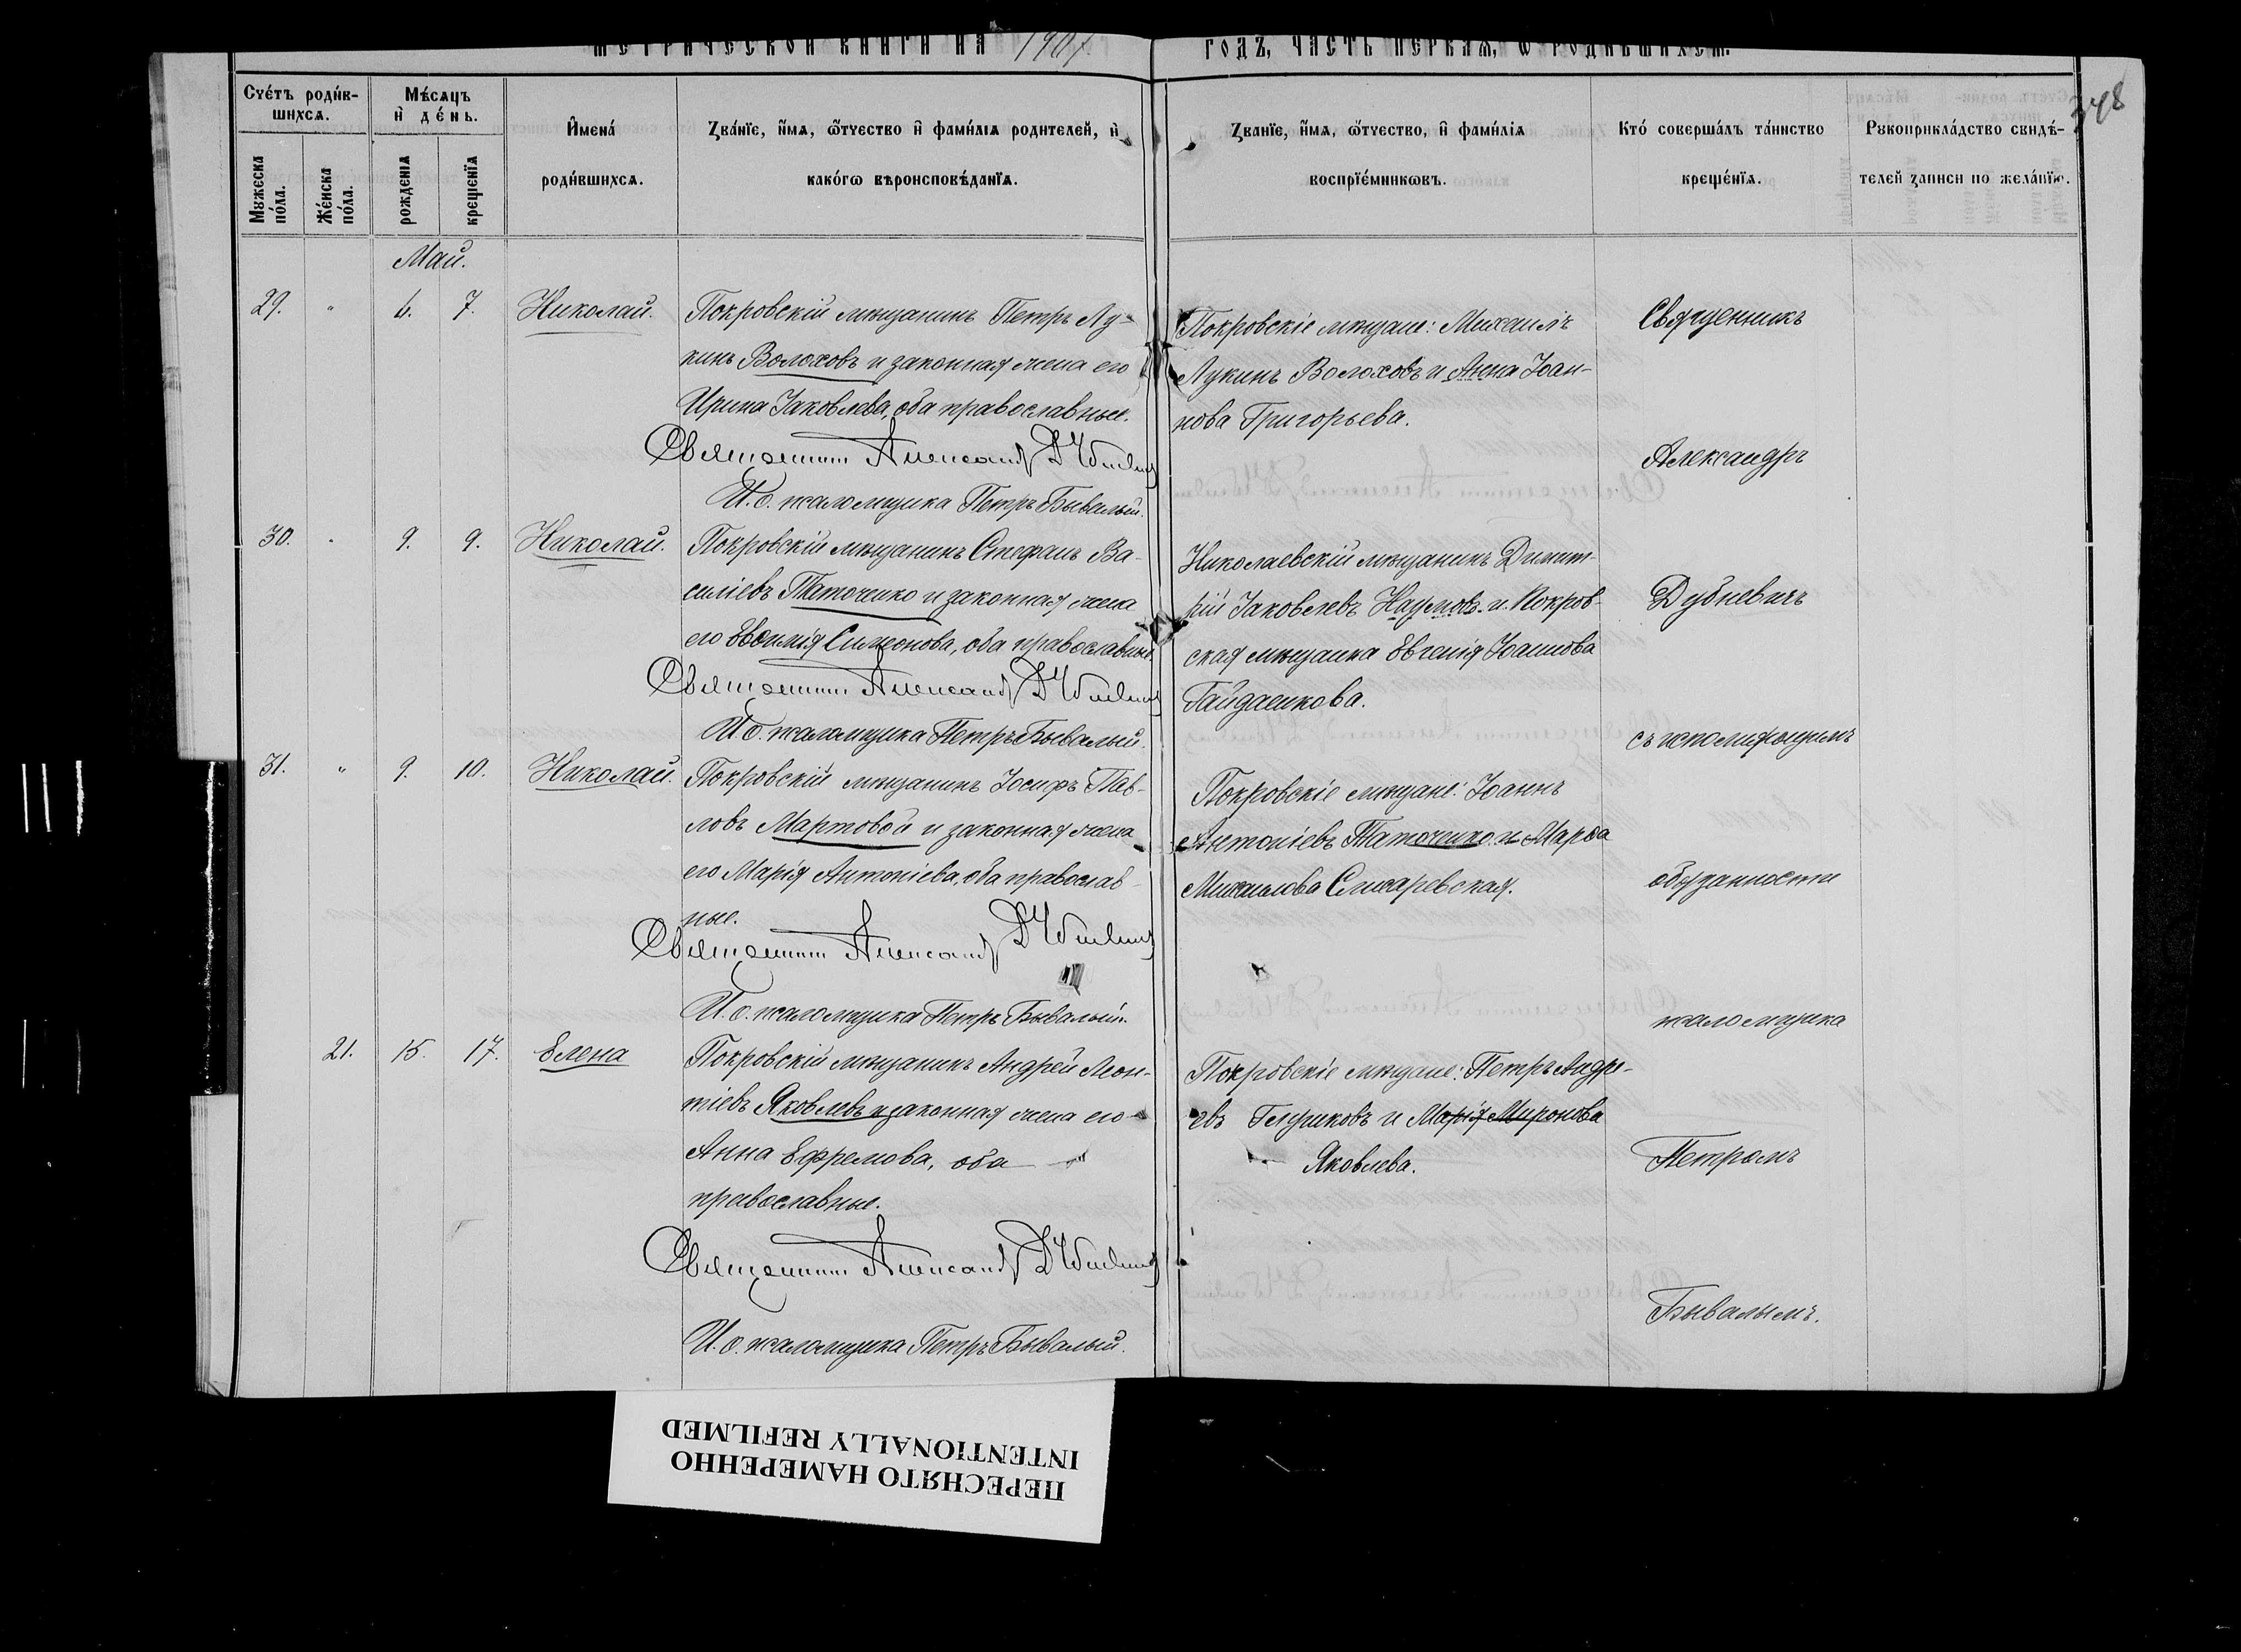 МЕТРИЧЕСКОЙ КНИГИ НА 1907
ГОДЪ, ЧАСТЬ ПЕРВАѦ, Ѡ РОДИВШИХСѦ.
348
Счéтъ роди́в-
шихсѧ.
Мꙋжеска
по́ла.
Же́нска
по́ла.
Мѣ́сѧцъ
и҆ де́нь.
рожденїѧ
крещенїѧ
И҆мена́
роди́вшихсѧ.
Зва́нїе, и҆́мѧ, ѻ҆́тчество и҆ фами́лїѧ родителей, и҆
како́гѡ вѣроисповѣ́данїѧ.
Званїе, и҆́мѧ, ѻ҆́тчество, и҆ фами́лїѧ
воспрїе́мникѡвъ.
Кто́ соверша́лъ та́инство
креще́нїѧ.
Рꙋкоприкла́дство свидѣ́-
телей записи по жела́нїю.
Май.
29. " 6. 7. Николай.
Покровскій мѣщанинъ Петръ Лу-
кинъ Волоховъ и законная жена его
Ирина Іаковлева, оба православные.
Священникъ Александръ Дубневичъ
И. о. псаломщика Петръ Бывалый.
Покровскіе мѣщане: Михаилъ
Лукинъ Волоховъ и Анна Іоан-
нова Григорьева.
30. " 9. 9. Николай.
Покровскій мѣщанинъ Стефанъ Ва-
силіевъ Таточенко и законная жена
его Евѳимія Симеонова, оба православные.
Священникъ Александръ Дубневичъ
И. о. псаломщика Петръ Бывалый.
Николаевскій мѣщанинъ Димит-
рій Іаковлевъ Наумовъ и Покров-
ская мѣщанка Евгенія Іоаннова
Гайдаенкова.
31. " 9. 10. Николай.
Покровскій мѣщанинъ Іосифъ Пав-
ловъ Мартовой и законная жена
его Марія Антоніева, оба православ-
ные.
Священникъ Александръ Дубневичъ
И. о. псаломщика Петръ Бывалый.
Покровскіе мѣщане: Іоаннъ
Антоніевъ Таточенко и Марѳа
Михаилова Слюсаревская.
21. 15. 17. Елена
Покровскій мѣщанинъ Андрей Леон-
тіевъ Яковлевъ и законная жена его
Анна Ефремова, оба
православные.
Священникъ Александръ Дубневичъ
И. о. псаломщика Петръ Бывалый.
Покровскіе мѣщане: Петръ Андре-
евъ Глушковъ и Марія Миронова
Яковлева.
Священникъ
Александръ
Дубневичъ
съ исполняющимъ
обязанности
псаломщика
Петромъ
Бывалымъ.
ПЕРЕСНЯТО НАМЕРЕННО
INTENTIONALLY REFILMED